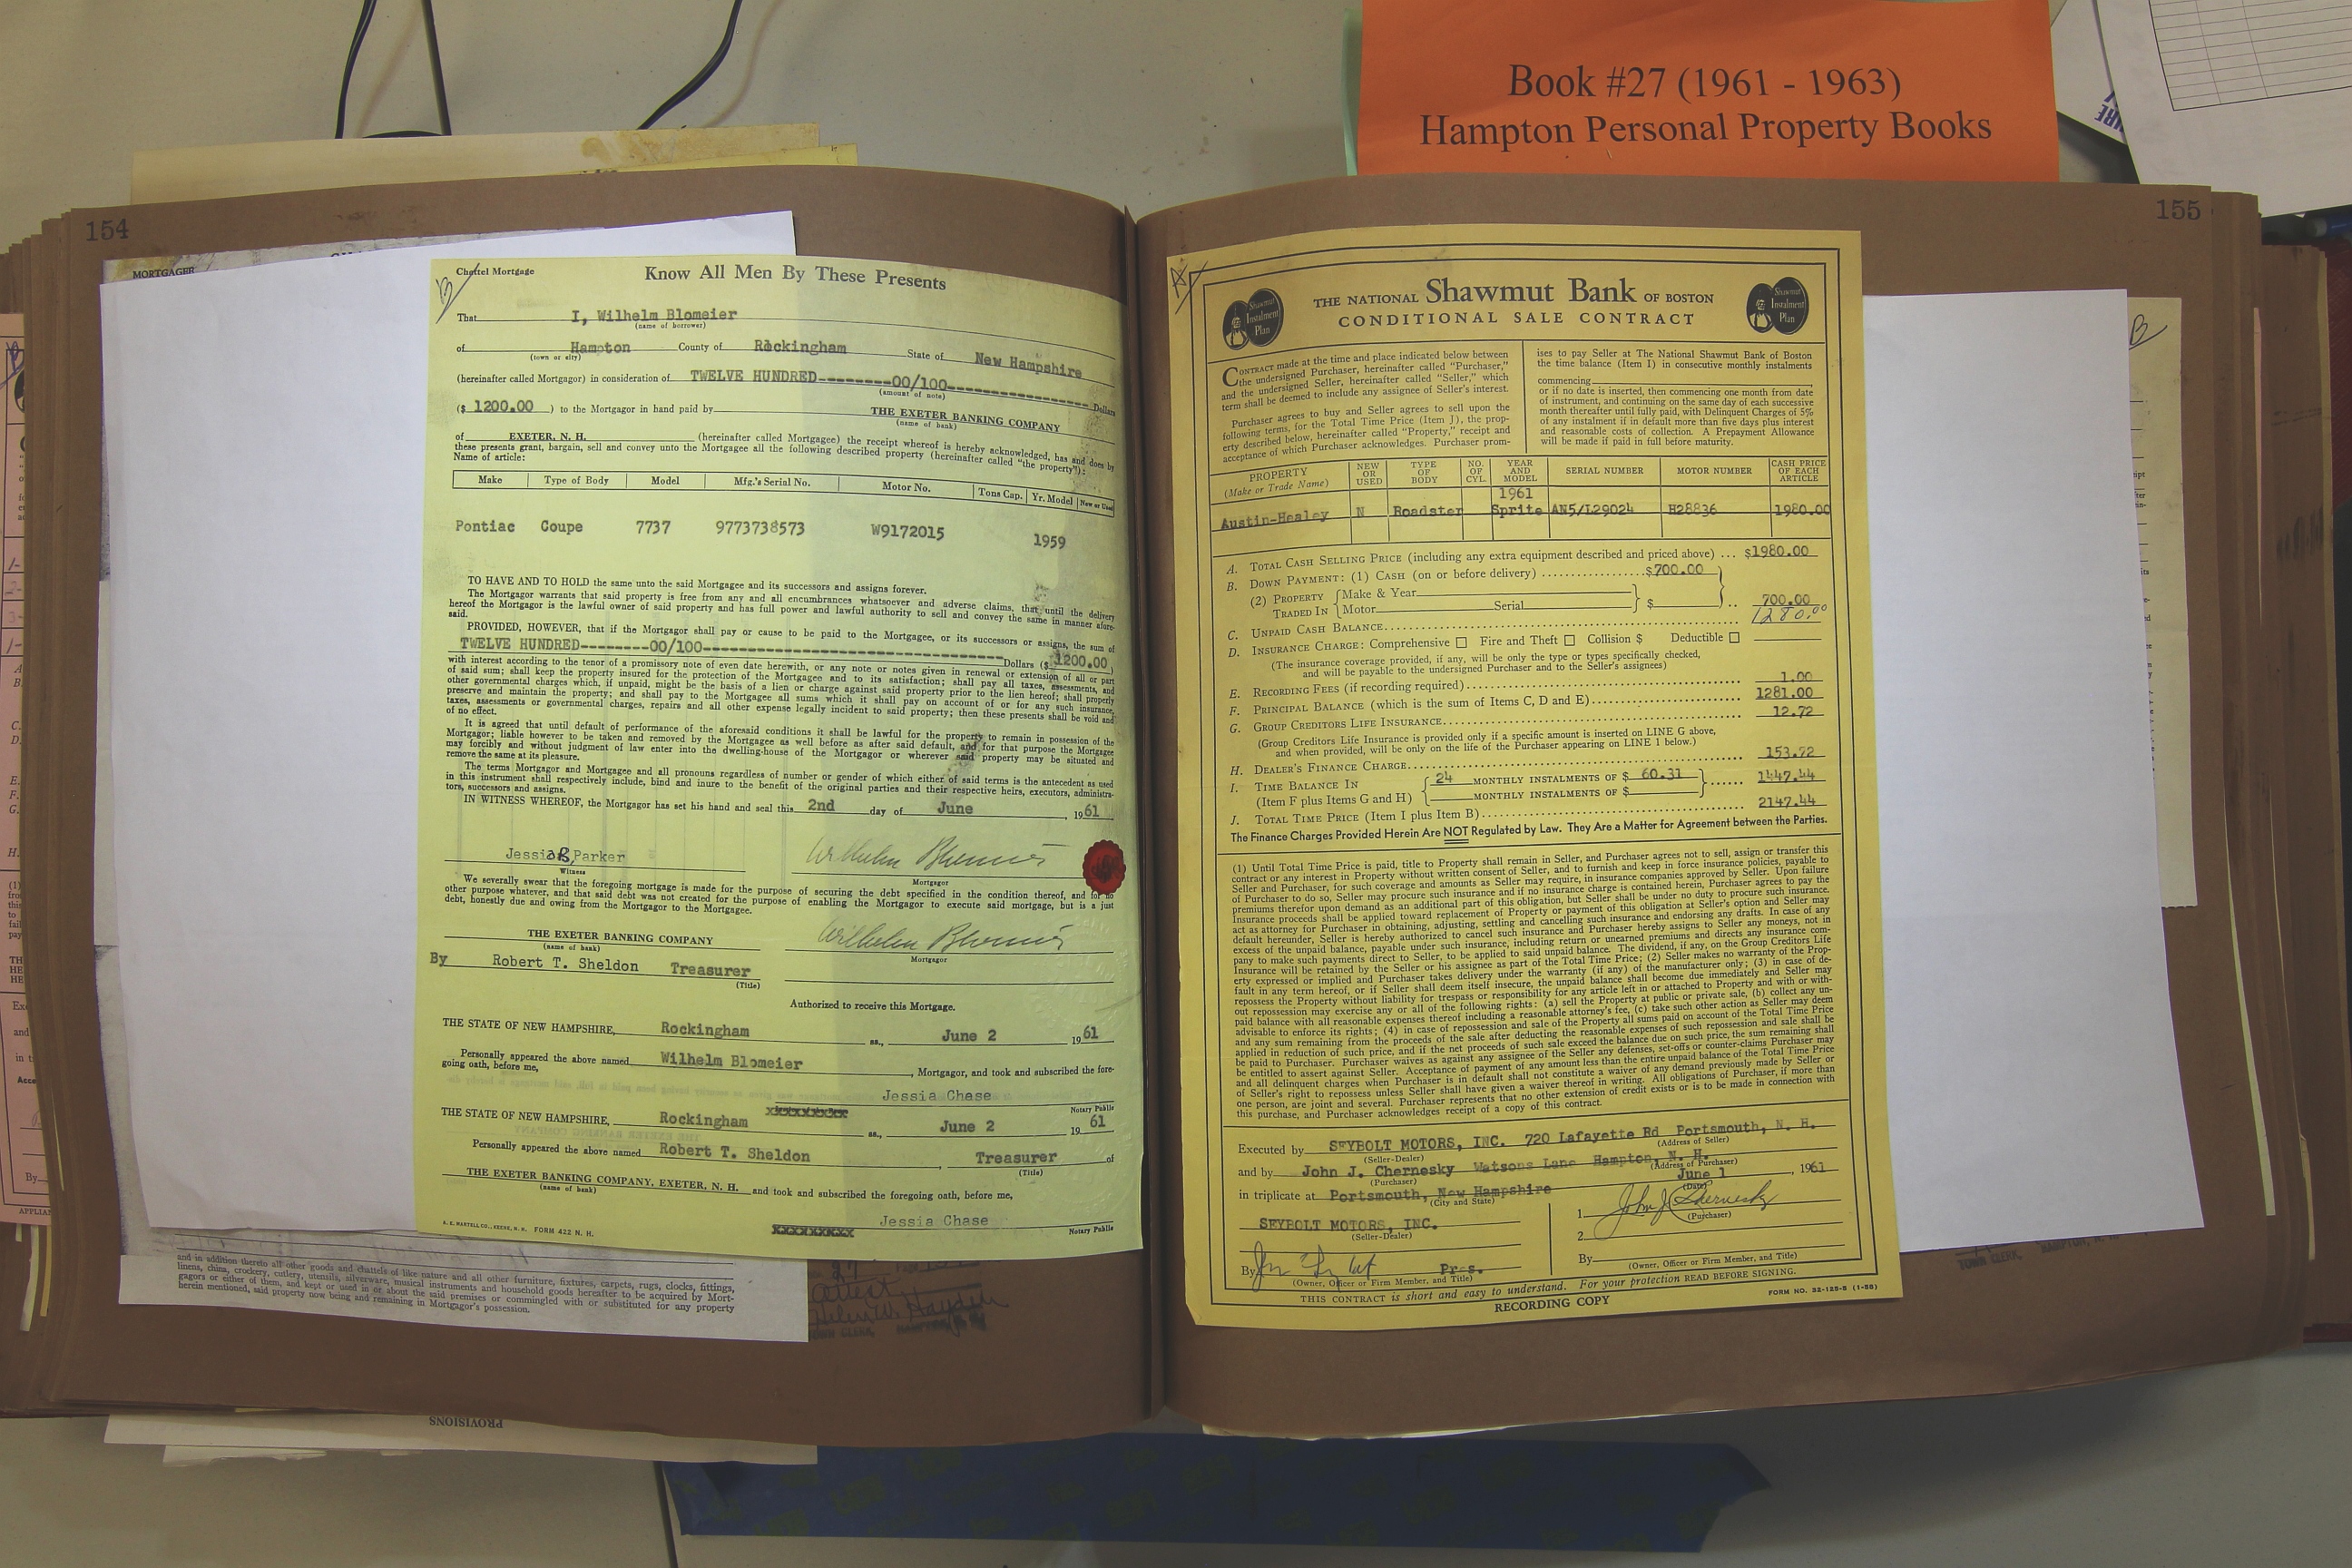 Book #27 (1961 - 1963)
Hampton Personal Property Books
154
MORTGAGER
B
Chattel Mortgage
Know All Men By These Presents
That I, Wilhelm Blomeier
(name of borrower)
of Hampton County of Rockingham State of New Hampshire
(town or city)
(hereinafter called Mortgagor) in consideration of TWELVE HUNDRED--------00/100-------------------- Dollars
(amount of note)
($ 1200.00 ) to the Mortgagor in hand paid by THE EXETER BANKING COMPANY
(name of bank)
of EXETER, N. H. (hereinafter called Mortgagee) the receipt whereof is hereby acknowledged, has and does by
these presents grant, bargain, sell and convey unto the Mortgagee all the following described property (hereinafter called "the property"):
Name of article:
Make Type of Body Model Mfg.'s Serial No. Motor No. Tons Cap. Yr. Model New or Used
Pontiac Coupe 7737 9773738573 W9172015 1959
TO HAVE AND TO HOLD the same unto the said Mortgagee and its successors and assigns forever.
The Mortgagor warrants that said property is free from any and all encumbrances whatsoever and adverse claims, that until the delivery
hereof the Mortgagor is the lawful owner of said property and has full power and lawful authority to sell and convey the same in manner afore-
said.
PROVIDED, HOWEVER, that if the Mortgagor shall pay or cause to be paid to the Mortgagee, or its successors or assigns, the sum of
TWELVE HUNDRED--------00/100-------------------- Dollars ($ 1200.00 )
with interest according to the tenor of a promissory note of even date herewith, or any note or notes given in renewal or extension of all or part
of said sum; shall keep the property insured for the protection of the Mortgagee and to its satisfaction; shall pay all taxes, assessments, and
other governmental charges which, if unpaid, might be the basis of a lien or charge against said property prior to the lien hereof; shall properly
preserve and maintain the property; and shall pay to the Mortgagee all sums which it shall pay on account of or for any such insurance,
taxes, assessments or governmental charges, repairs and all other expense legally incident to said property; then these presents shall be void and
of no effect.
It is agreed that until default of performance of the aforesaid conditions it shall be lawful for the property to remain in possession of the
Mortgagor; liable however to be taken and removed by the Mortgagee as well before as after said default, and for that purpose the Mortgagee
may forcibly and without judgment of law enter into the dwelling-house of the Mortgagor or wherever said property may be situated and
remove the same at its pleasure.
The terms Mortgagor and Mortgagee and all pronouns regardless of number or gender of which either of said terms is the antecedent as used
in this instrument shall respectively include, bind and inure to the benefit of the original parties and their respective heirs, executors, administra-
tors, successors and assigns.
IN WITNESS WHEREOF, the Mortgagor has set his hand and seal this 2nd day of June , 19 61
Jessia B. Parker Wilhelm Blomeier
Witness Mortgagor
We severally swear that the foregoing mortgage is made for the purpose of securing the debt specified in the condition thereof, and for no
other purpose whatever, and that said debt was not created for the purpose of enabling the Mortgagor to execute said mortgage, but is a just
debt, honestly due and owing from the Mortgagor to the Mortgagee.
THE EXETER BANKING COMPANY Wilhelm Blomeier
(name of bank) Mortgagor
By Robert T. Sheldon Treasurer
(Title)
Authorized to receive this Mortgage.
THE STATE OF NEW HAMPSHIRE, Rockingham ss., June 2 19 61
Personally appeared the above named Wilhelm Blomeier , Mortgagor, and took and subscribed the fore-
going oath, before me,
Jessia Chase
Notary Public
THE STATE OF NEW HAMPSHIRE, Rockingham ss., June 2 19 61
Personally appeared the above named Robert T. Sheldon , Treasurer of
(Title)
THE EXETER BANKING COMPANY, EXETER, N. H. and took and subscribed the foregoing oath, before me,
(name of bank)
Jessia Chase
Notary Public
A. E. MARTELL CO., KEENE, N. H. FORM 422 N. H.
and in addition thereto all other goods and chattels of like nature and all other furniture, fixtures, carpets, rugs, clocks, fittings,
linens, china, crockery, cutlery, utensils, silverware, musical instruments and household goods hereafter to be acquired by Mort-
gagors or either of them, and kept or used in or about the said premises or commingled with or substituted for any property
herein mentioned, said property now being and remaining in Mortgagor's possession.
27
attest
Helen W. Hayden
TOWN CLERK,
PROVISIONS
155
A
Shawmut Instalment Plan
THE NATIONAL Shawmut Bank OF BOSTON
CONDITIONAL SALE CONTRACT
Shawmut Instalment Plan
CONTRACT made at the time and place indicated below between
the undersigned Purchaser, hereinafter called "Purchaser,"
and the undersigned Seller, hereinafter called "Seller," which
term shall be deemed to include any assignee of Seller's interest.
Purchaser agrees to buy and Seller agrees to sell upon the
following terms, for the Total Time Price (Item J), the prop-
erty described below, hereinafter called "Property," receipt and
acceptance of which Purchaser acknowledges. Purchaser prom-
ises to pay Seller at The National Shawmut Bank of Boston
the time balance (Item I) in consecutive monthly instalments
commencing
or if no date is inserted, then commencing one month from date
of instrument, and continuing on the same day of each successive
month thereafter until fully paid, with Delinquent Charges of 5%
of any instalment if in default more than five days plus interest
and reasonable costs of collection. A Prepayment Allowance
will be made if paid in full before maturity.
PROPERTY (Make or Trade Name) NEW OR USED TYPE OF BODY NO. OF CYL. YEAR AND MODEL SERIAL NUMBER MOTOR NUMBER CASH PRICE OF EACH ARTICLE
1961
Austin-Healey N Roadster Sprite AN5/L29024 H28836 1980.00
A. TOTAL CASH SELLING PRICE (including any extra equipment described and priced above) ... $1980.00
B. DOWN PAYMENT: (1) CASH (on or before delivery) .......... $700.00
(2) PROPERTY TRADED IN Make & Year
Motor Serial $ .. 700.00
C. UNPAID CASH BALANCE.......... 1280.00
D. INSURANCE CHARGE: Comprehensive Fire and Theft Collision $ Deductible
(The insurance coverage provided, if any, will be only the type or types specifically checked,
and will be payable to the undersigned Purchaser and to the Seller's assignees)
E. RECORDING FEES (if recording required).......... 1.00
F. PRINCIPAL BALANCE (which is the sum of Items C, D and E).......... 1281.00
G. GROUP CREDITORS LIFE INSURANCE.......... 12.72
(Group Creditors Life Insurance is provided only if a specific amount is inserted on LINE G above,
and when provided, will be only on the life of the Purchaser appearing on LINE 1 below.)
H. DEALER'S FINANCE CHARGE.......... 153.72
I. TIME BALANCE IN 24 MONTHLY INSTALMENTS OF $ 60.31 ...... 1447.44
(Item F plus Items G and H) MONTHLY INSTALMENTS OF $
J. TOTAL TIME PRICE (Item I plus Item B).......... 2147.44
The Finance Charges Provided Herein Are NOT Regulated by Law. They Are a Matter for Agreement between the Parties.
(1) Until Total Time Price is paid, title to Property shall remain in Seller, and Purchaser agrees not to sell, assign or transfer this
contract or any interest in Property without written consent of Seller, and to furnish and keep in force insurance policies, payable to
Seller and Purchaser, for such coverage and amounts as Seller may require, in insurance companies approved by Seller. Upon failure
of Purchaser to do so, Seller may procure such insurance and if no insurance charge is contained herein, Purchaser agrees to pay the
premiums therefor upon demand as an additional part of this obligation, but Seller shall be under no duty to procure such insurance.
Insurance proceeds shall be applied toward replacement of Property or payment of this obligation at Seller's option and Seller may
act as attorney for Purchaser in obtaining, adjusting, settling and cancelling such insurance and endorsing any drafts. In case of any
default hereunder, Seller is hereby authorized to cancel such insurance and Purchaser hereby assigns to Seller any moneys, not in
excess of the unpaid balance, payable under such insurance, including return or unearned premiums and directs any insurance com-
pany to make such payments direct to Seller, to be applied to said unpaid balance. The dividend, if any, on the Group Creditors Life
Insurance will be retained by the Seller or his assignee as part of the Total Time Price; (2) Seller makes no warranty of the Prop-
erty expressed or implied and Purchaser takes delivery under the warranty (if any) of the manufacturer only; (3) in case of de-
fault in any term hereof, or if Seller shall deem itself insecure, the unpaid balance shall become due immediately and Seller may
repossess the Property without liability for trespass or responsibility for any article left in or attached to Property and with or with-
out repossession may exercise any or all of the following rights: (a) sell the Property at public or private sale, (b) collect any un-
paid balance with all reasonable expenses thereof including a reasonable attorney's fee, (c) take such other action as Seller may deem
advisable to enforce its rights; (4) in case of repossession and sale of the Property all sums paid on account of the Total Time Price
and any sum remaining from the proceeds of the sale after deducting the reasonable expenses of such repossession and sale shall be
applied in reduction of such price, and if the net proceeds of such sale exceed the balance due on such price, the sum remaining shall
be paid to Purchaser. Purchaser waives as against any assignee of the Seller any defenses, set-offs or counter-claims Purchaser may
be entitled to assert against Seller. Acceptance of payment of any amount less than the entire unpaid balance of the Total Time Price
and all delinquent charges when Purchaser is in default shall not constitute a waiver of any demand previously made by Seller or
of Seller's right to repossess unless Seller shall have given a waiver thereof in writing. All obligations of Purchaser, if more than
one person, are joint and several. Purchaser represents that no other extension of credit exists or is to be made in connection with
this purchase, and Purchaser acknowledges receipt of a copy of this contract.
Executed by SEYBOLT MOTORS, INC. 720 Lafayette Rd Portsmouth, N. H.
(Seller-Dealer) (Address of Seller)
and by John J. Chernesky Watsons Lane Hampton, N. H.
(Purchaser) (Address of Purchaser)
June 1 , 1961
(Date)
in triplicate at Portsmouth, New Hampshire
(City and State)
SEYBOLT MOTORS, INC. 1 John J Chernesky
(Seller-Dealer) (Purchaser)
2
By Pres. By
(Owner, Officer or Firm Member, and Title) (Owner, Officer or Firm Member, and Title)
THIS CONTRACT is short and easy to understand. For your protection READ BEFORE SIGNING.
RECORDING COPY
FORM NO. 32-125-B (1-58)
B
TOWN CLERK, HAMPTON, N. H.